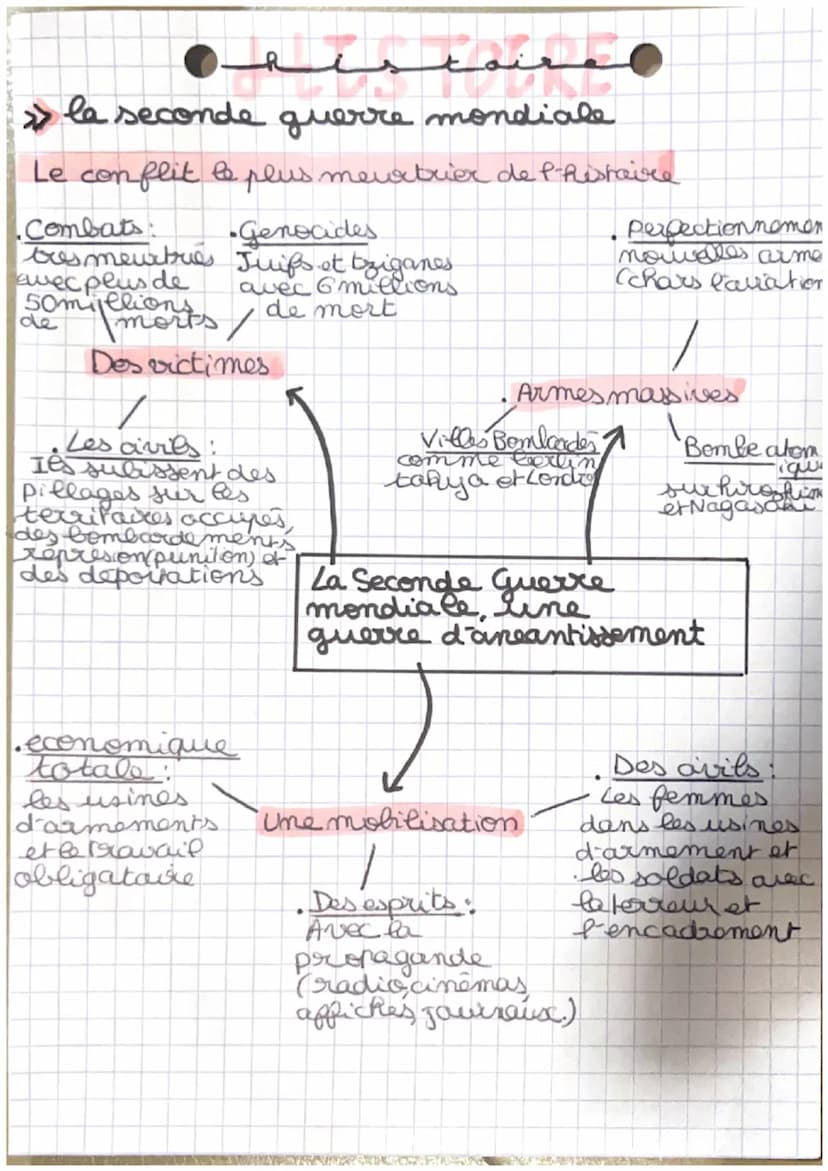 HISTOIRE
histoire
>> la seconde guerre mondiale
Le conflit le plus meurtrier de l'histoire
. Combats :
tres meurtriés
avec plus de
50 millions
de morts
. Genocides
Juifs et tziganes
avec 6 millions
de mort
. perfectionnemen
nouvelles arme
(chars l'aviation
Des victimes
. Armes massives
. Les civils :
Ils subissent des
pillages sur les
territoires occupés,
des bombardements,
represion (punition) et
des deportations
Villes Bombardés
comme berlin
tokyo et Londre
Bombe atom
ique
sur hiroshim
et Nagasaki
La Seconde Guerre
mondiale, une
guerre d'aneantissement
. economique
totale :
les usines
d'armements
et le travail
obligatoire
Une mobilisation
. Des civils :
Les femmes
dans les usines
d'armement et
. les soldats avec
la terreur et
l'encadrement
. Des esprits :
Avec la
propagande
(radio, cinémas,
affiches, journaux.)